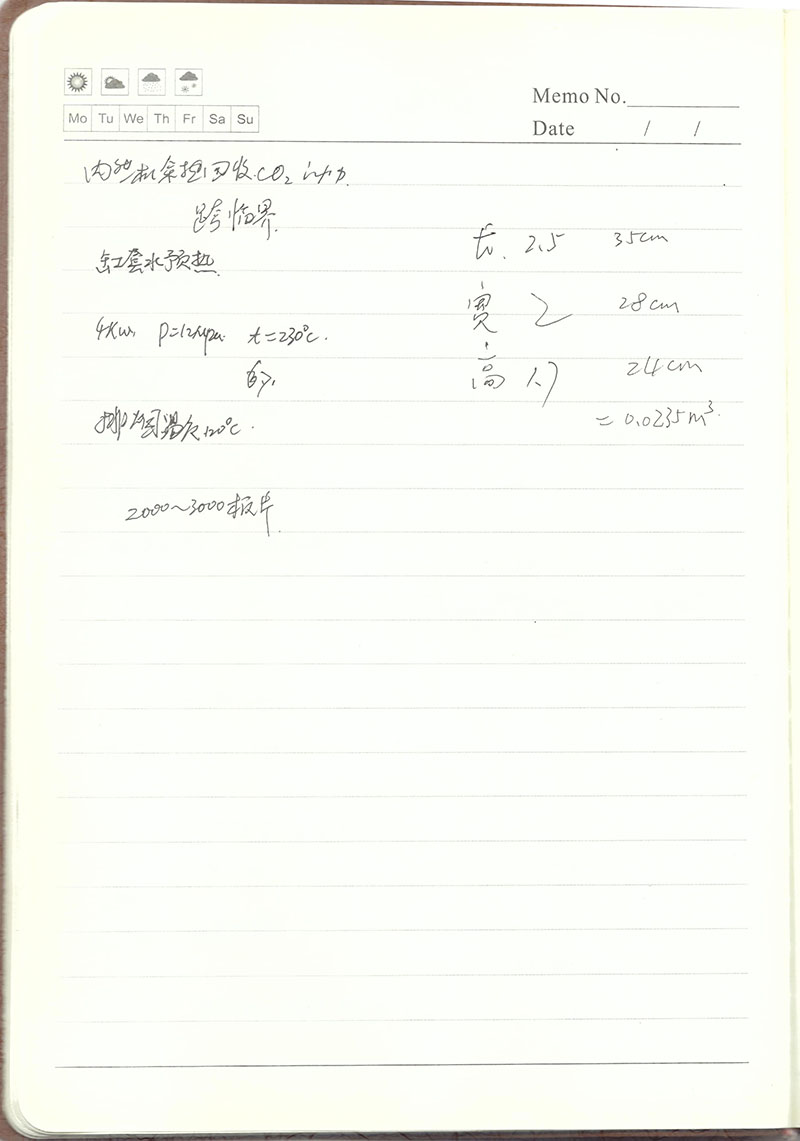 Mo Tu We Th Fr Sa Su
Memo No.
Date / /
内燃机余热回收 CO₂ 动力
跨临界
缸套水预热
4kw P=12Mpa t=230℃.
排烟温度120℃.
2000~3000板片
长. 2.5 35cm
宽 2 28cm
高 1.7 24cm
= 0.0235m³.